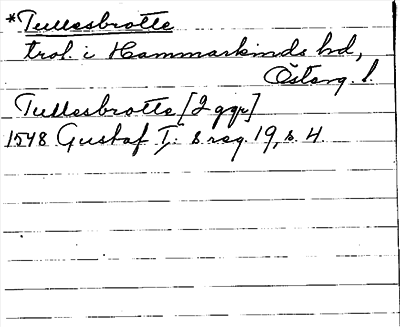 *Tullesbrotte
trol. i Hammarkinds hd,
Östерg. l.
Tullesbrotte [2 ggr]
1548 Gustaf I: s reg. 19, s. 4.